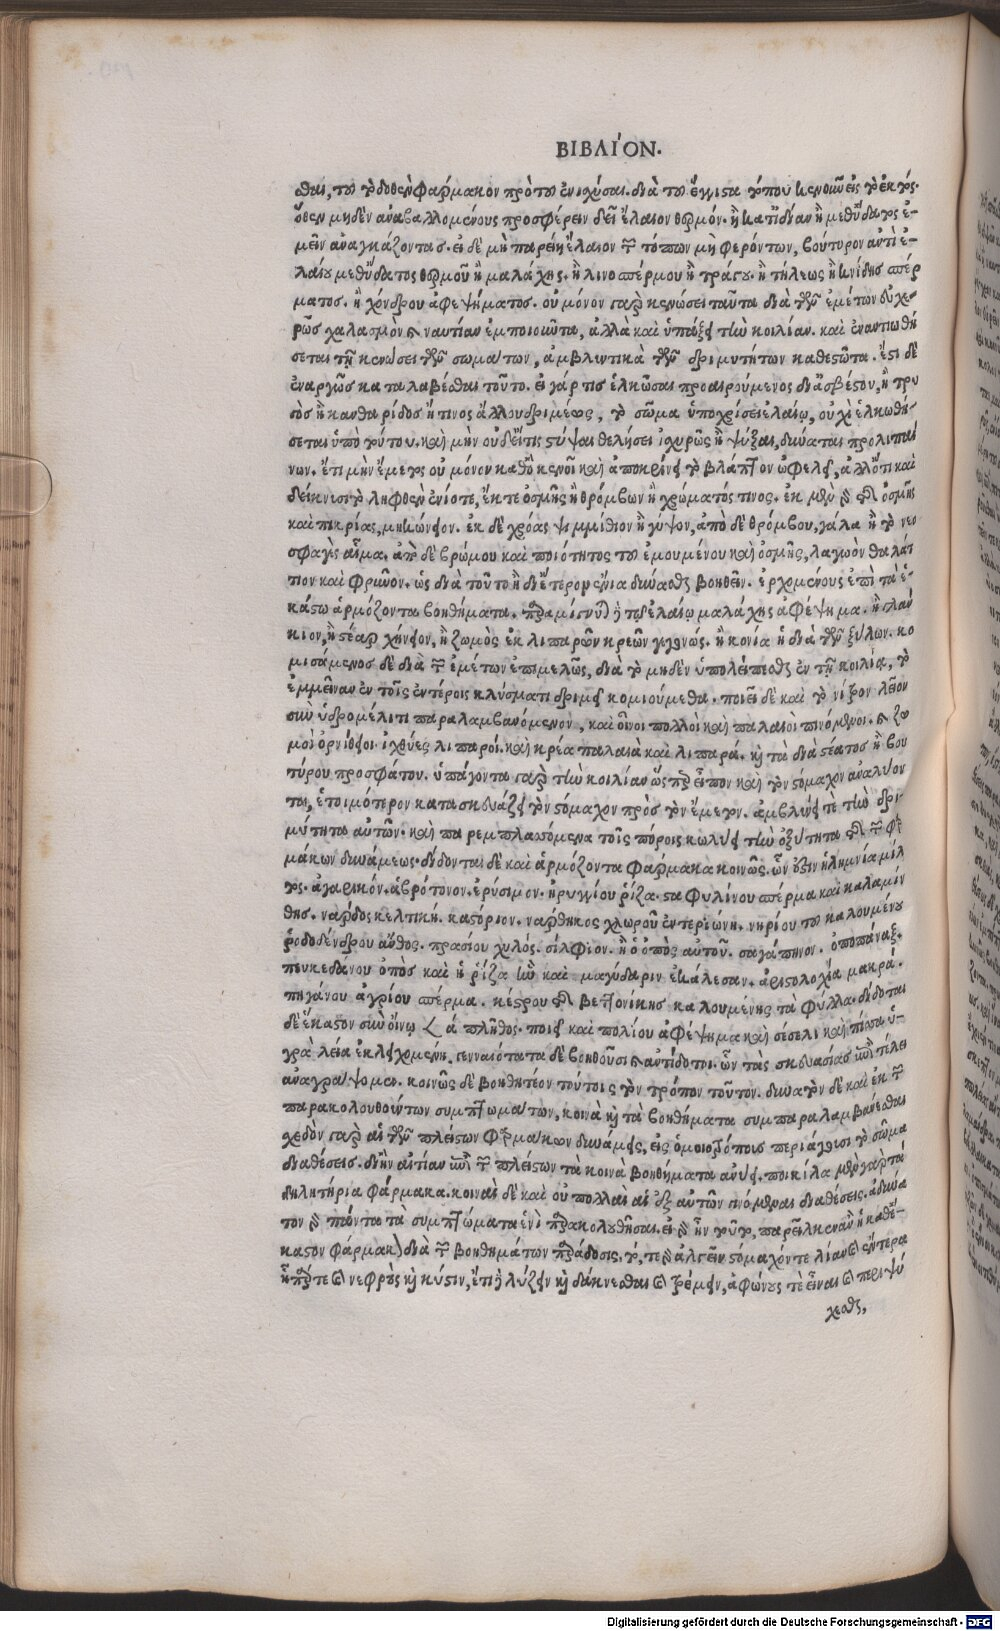 ΒΙΒΛΙ´ΟΝ.
σθαι, τοῦ τὸ δοθὲν φάρμακον πρὸ τοῦ ἐνισχύσαι. διὰ τοῦ ἔγγιστα τόπου κενοῦν εἰς τὸ ἐκτός.
ὅθεν μηδὲν ἀναβαλλομένους προσφέρειν δεῖ ἔλαιον θερμόν. ἢ κατ᾽ ἰδίαν ἢ μεθ᾽ ὕδατος ἐ-
μεῖν ἀναγκάζοντας. εἰ δὲ μὴ παρείη ἔλαιον τῶν τόπων μὴ φερόντων, βούτυρον ἀντὶ ἐ-
λαίου μεθ᾽ ὕδατος θερμοῦ ἢ μαλάχης. ἢ λινοσπέρμου ἢ τράγου. ἢ τήλεως ἢ κνίδης σπέρ
ματος. ἢ χόνδρου ἀφεψήματος. οὐ μόνον γὰρ κενώσει ταῦτα διὰ τῶν ἐμέτων εὐχε-
ρῶς χαλασμὸν καὶ ναυτίαν ἐμποιοῦντα, ἀλλὰ καὶ ὑπάξει τὴν κοιλίαν. καὶ ἐναντιωθή
σεται τῇ κενώσει τῶν σωμάτων, ἀμβλυντικὰ τῶν δριμυτήτων καθεστῶτα. ἔστι δὲ
ἐναργῶς καταλαβέσθαι τοῦτο. εἰ γάρ τις ἑλκῶσαι προαιρούμενος δι᾽ ἀσβέστου, ἢ τρυ
γὸς ἢ κανθαρίδος ἤ τινος ἄλλου δριμέως, τὸ σῶμα ὑποχρίσει ἐλαίῳ, οὐχὶ ἑλκωθή-
σεται ὑπὸ τούτου. καὶ μὴν οὐδ᾽ εἴ τις στύψαι θελήσει ἰσχυρῶς ἢ ψύξαι, δύναται προλιπαί
νων. ἔτι μὴν ἔμετος οὐ μόνον καθὸ κενοῖ καὶ ἀποκρίνει τὸ βλάπτον ὠφελεῖ, ἀλλ᾽ ὅτι καὶ
δείκνυσι τὸ ληφθὲν ἐνίοτε, ἔκ τε ὀσμῆς ἢ θρόμβων ἢ χρώματός τινος. ἐκ μὲν γὰρ τῆς ὀσμῆς
καὶ πικρίας, μηκώνιον. ἐκ δὲ χρόας ψιμμίθιον ἢ γύψον, ἀπὸ δὲ θρόμβου, γάλα ἢ τὸ νεο
σφαγὲς αἷμα. ἀπὸ δὲ βρώμου καὶ ποιότητος τοῦ ἐμουμένου καὶ ὀσμῆς, λαγωὸν θαλάτ
τιον καὶ φρύνον. ὡς διὰ τοῦτο ἢ δι᾽ ἕτερον ἔνια δύνασθαι βοηθεῖν. ἐρχομένους ἐπὶ τὰ ἑ-
κάστῳ ἁρμόζοντα βοηθήματα. παραμίσγυται τῷ ἐλαίῳ μαλάχης ἀφέψημα. ἢ γλαύ
κιον, ἢ στέαρ χήνειον, ἢ ζωμὸς ἐκ λιπαρῶν κρεῶν γεγονώς. ἢ κονία ἡ διὰ τῶν ξύλων. κο
μισάμενος δὲ διὰ τῶν ἐμέτων ἐπιμελῶς, διὰ τὸ μηδὲν ὑπολείπεσθαι ἐν τῇ κοιλίᾳ, τὸ
ἐμμεῖναν ἐν τοῖς ἐντέροις κλύσματι δριμεῖ κομιούμεθα. ποιεῖ δὲ καὶ τὸ νίτρον λεῖον
σὺν ὑδρομέλιτι παραλαμβανόμενον, καὶ οἶνοι πολλοὶ καὶ παλαιοὶ πινόμενοι. καὶ ζω
μοὶ ὀρνίθειοι. ἰχθύες λιπαροί. καὶ κρέα παλαιὰ καὶ λιπαρά. καὶ τὰ διὰ στέατος ἢ βου
τύρου προσφάτου. ὑπάγοντα γὰρ τὴν κοιλίαν ὥσπερ εἶπον καὶ τὸν στόμαχον ἀναλύον
τα, ἑτοιμότερον κατασκευάζει τὸν στόμαχον πρὸς τὸν ἔμετον. ἀμβλύνει τε τὴν δρι-
μύτητα αὐτῶν. καὶ παρεμπλασσόμενα τοῖς πόροις κωλύει τὴν ὀξύτητα τῆς τῶν φαρ
μάκων δυνάμεως. δίδονται δὲ καὶ ἁρμόζοντα φάρμακα κοινῶς. ὧν ἐστιν ἡ λημνία μίλ
τος. ἀγαρικόν. ἀβρότονον. ἐρύσιμον. ἠρυγγίου ῥίζα. σταφυλίνου σπέρμα καὶ καλαμίν
θης. νάρδος κελτική. καστόριον. νάρθηκος χλωροῦ ἐντεριώνη. νηρίου τοῦ καλουμένου
ῥοδοδένδρου ἄνθος. πρασίου χυλός. σίλφιον. ἢ ὁ ὀπὸς αὐτοῦ. σαγάπηνον. ὀποπάναξ.
πευκεδάνου ὀπὸς καὶ ἡ ῥίζα ἣν καὶ μαγύδαριν ἐκάλεσαν. ἀριστολοχία μακρά.
πηγάνου ἀγρίου σπέρμα. κέστρου τῆς βετονικῆς καλουμένης τὰ φύλλα. δίδοται
δὲ ἕκαστον σὺν οἴνῳ 𐅻 ά πλῆθος. ποιεῖ καὶ πολίου ἀφέψημα καὶ σέσελι καὶ πίσσα ὑ-
γρὰ λεία ἐκλειχομένη. γενναιότατα δὲ βοηθοῦσι καὶ ἀντίδοτοι. ὧν τὰς σκευασίας ἐπὶ τέλει
ἀναγράψομεν. κοινῶς δὲ βοηθητέον τούτοις τὸν τρόπον τοῦτον. δυνατὸν δὲ καὶ ἐκ τῶν
παρακολουθούντων συμπτωμάτων, κοινὰ καὶ τὰ βοηθήματα συμπαραλαμβάνεσθαι
χεδὸν γὰρ αἱ τῶν πλείστων φαρμάκων δυνάμεις, εἰς ὁμοιοτρόπους περιάγουσι τὸ σῶμα
διαθέσεις. δι᾽ ἣν αἰτίαν ἐπὶ τῶν πλείστων τὰ κοινὰ βοηθήματα ἀνύει. ποικίλα μὲν γὰρ τὰ
δηλητήρια φάρμακα. κοιναὶ δὲ καὶ οὐ πολλαὶ αἱ ἐξ αὐτῶν γινόμεναι διαθέσεις. ἀδύνα
τον γὰρ πάντα τὰ συμπτώματα ἑνὶ παρακολουθῆσαι. εἰ γὰρ ἦν τοῦτο, παρεῖλκεν ἂν ἡ καθ᾽ ἕ-
καστον φάρμακον διὰ τῶν βοηθημάτων παράδοσις. τό, τε γὰρ ἀλγεῖν στόμαχόν τε λίαν καὶ ἔντερα
ἧπάρ τε καὶ νεφροὺς καὶ κύστιν, ἔτι τε λύζειν καὶ δάκνεσθαι καὶ τρέμειν, ἀφώνους τὲ εἶναι καὶ περιψύ
χεσθαι,